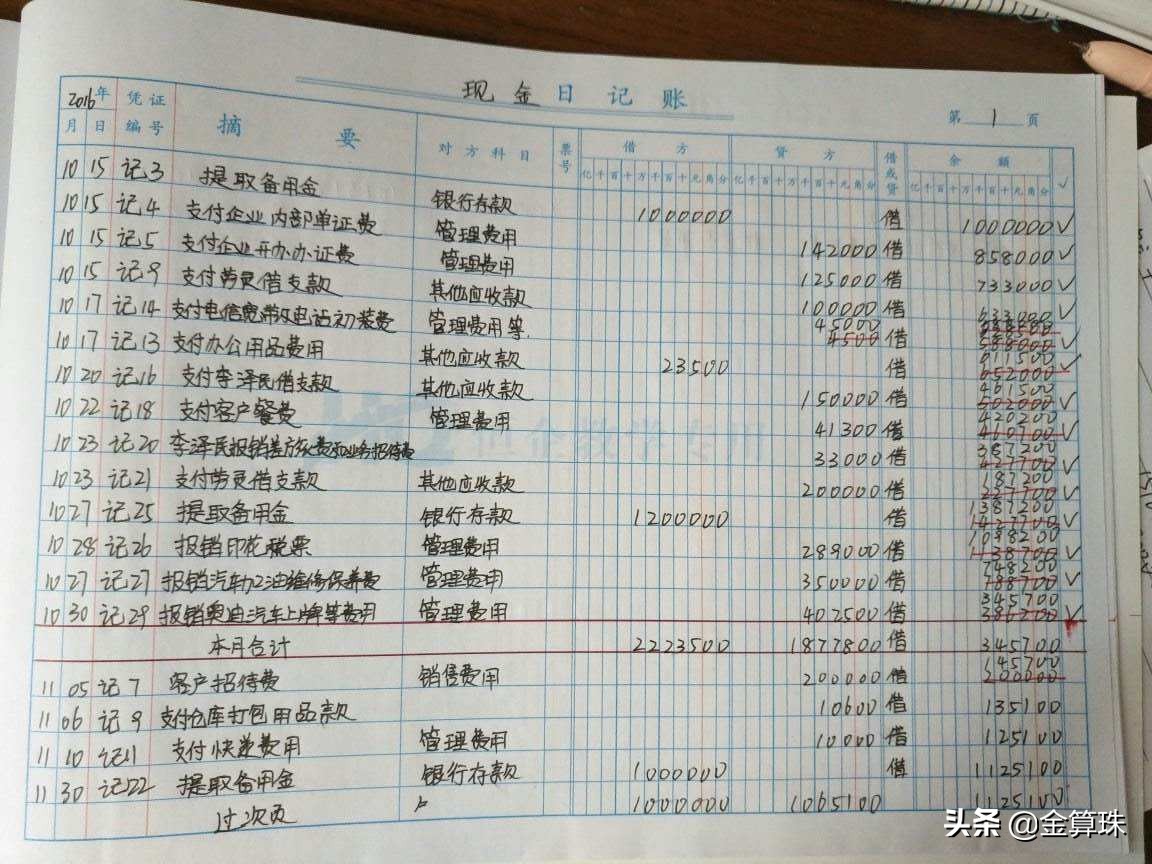 现金日记账
第 1 页
2016年 凭证 摘要 对方科目 票号 借方 贷方 借或贷 余额 √
月 日 编号 亿千百十万千百十元角分 亿千百十万千百十元角分 亿千百十万千百十元角分
10 15 记3 提取备用金 银行存款 1000000 借 1000000 √
10 15 记4 支付企业内部单证费 管理费用 142000 借 858000 √
10 15 记5 支付企业开办办证费 管理费用 125000 借 733000 √
10 15 记9 支付劳灵借支款 其他应收款 100000 借 633000 √
10 17 记14 支付电信宽带及电话初装费 管理费用等 45000 4500 借 588000 √
10 17 记13 支付办公用品费用 其他应收款 23500 借 611500 652000 √
10 20 记16 支付李泽民借支款 其他应收款 150000 借 461500 502000 √
10 22 记18 支付客户餐费 管理费用 41300 借 420200 460700 √
10 23 记20 李泽民报销差旅费和业务招待费 33000 借 387200 427700 √
10 23 记21 支付劳灵借支款 其他应收款 200000 借 187200 227700 √
10 27 记25 提取备用金 银行存款 1200000 借 1387200 1427700 √
10 28 记26 报销印花税票 管理费用 289000 借 1098200 1138700 √
10 27 记27 报销汽车加油维修保养费 管理费用 350000 借 748200 788700 √
10 30 记29 报销奥迪汽车上牌等费用 管理费用 402500 借 345700 386200 √
本月合计 2223500 1877800 借 345700
11 05 记7 客户招待费 销售费用 200000 借 145700 200000
11 06 记9 支付仓库打包用品款 10600 借 135100
11 10 记11 支付快递费用 管理费用 10000 借 125100
11 30 记22 提取备用金 银行存款 1000000 借 1125100
过次页 1000000 1065100 1125100
头条 @金算珠